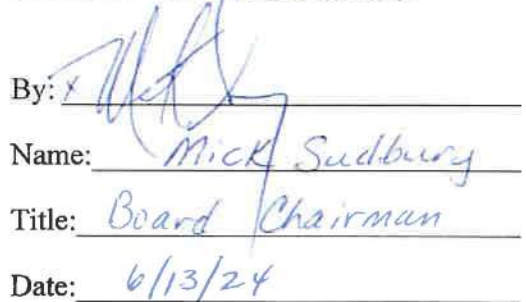 By: x
Name: Mick Sudbury
Title: Board Chairman
Date: 6/13/24